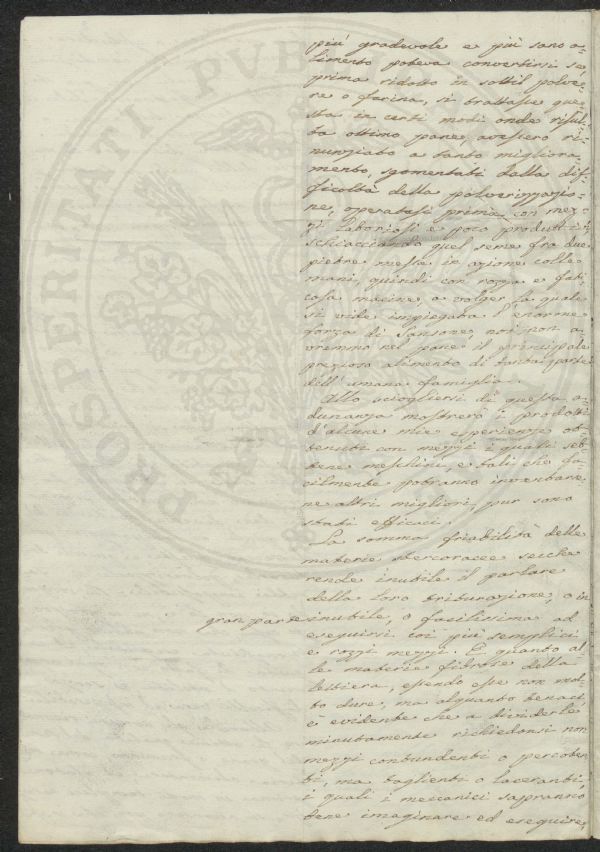 piú gradevole e piú sano a-
limento poteva convertirsi se,
prima ridotto in sottil polve-
re o farina, si trattasse que-
sta in certi modi onde risul-
ta ottimo pane, avessero ri-
nunziato a tanto migliora-
mento, sgomentati dalla dif-
ficoltà della polverizzazio-
ne, operatasi prima con mez-
zi laboriosi e poco produttivi
schiacciando quel seme fra due
piebre messe in azione colle
mani, quindi con rozza e fati-
cosa macine a volger la quale
si vide impiegata l'enorme
forza di Sansone, noi non a-
vremmo nel pane il principale
prezioso alimento di tanta parte
dell'umana famiglia.
Allo sciogliersi di questa a-
dunanza mostrerò i prodotti
d'alcune mie esperienze ot-
tenuti con mezzi i quali seb-
bene meschini, e tali che fa-
cilmente potranno inventar-
ne altri migliori, pur sono
stati efficaci.
La somma friabilità delle
materie stercoracee secche
rende inutile il parlare
della loro triturazione, o in
gran parte inutile, o facilissima ad
eseguirsi coi più semplici
e rozzi mezzi. E quanto al-
le materie fibrose della
lettiera, essendo esse non mol-
to dure, ma alquanto tenaci,
è evidente che a dividerle
minutamente richiedonsi non
mezzi contundenti o percoten-
ti, ma taglienti o laceranti,
i quali i meccanici sapranno
bene imaginare ed eseguire,
PROSPERITATI PVBL